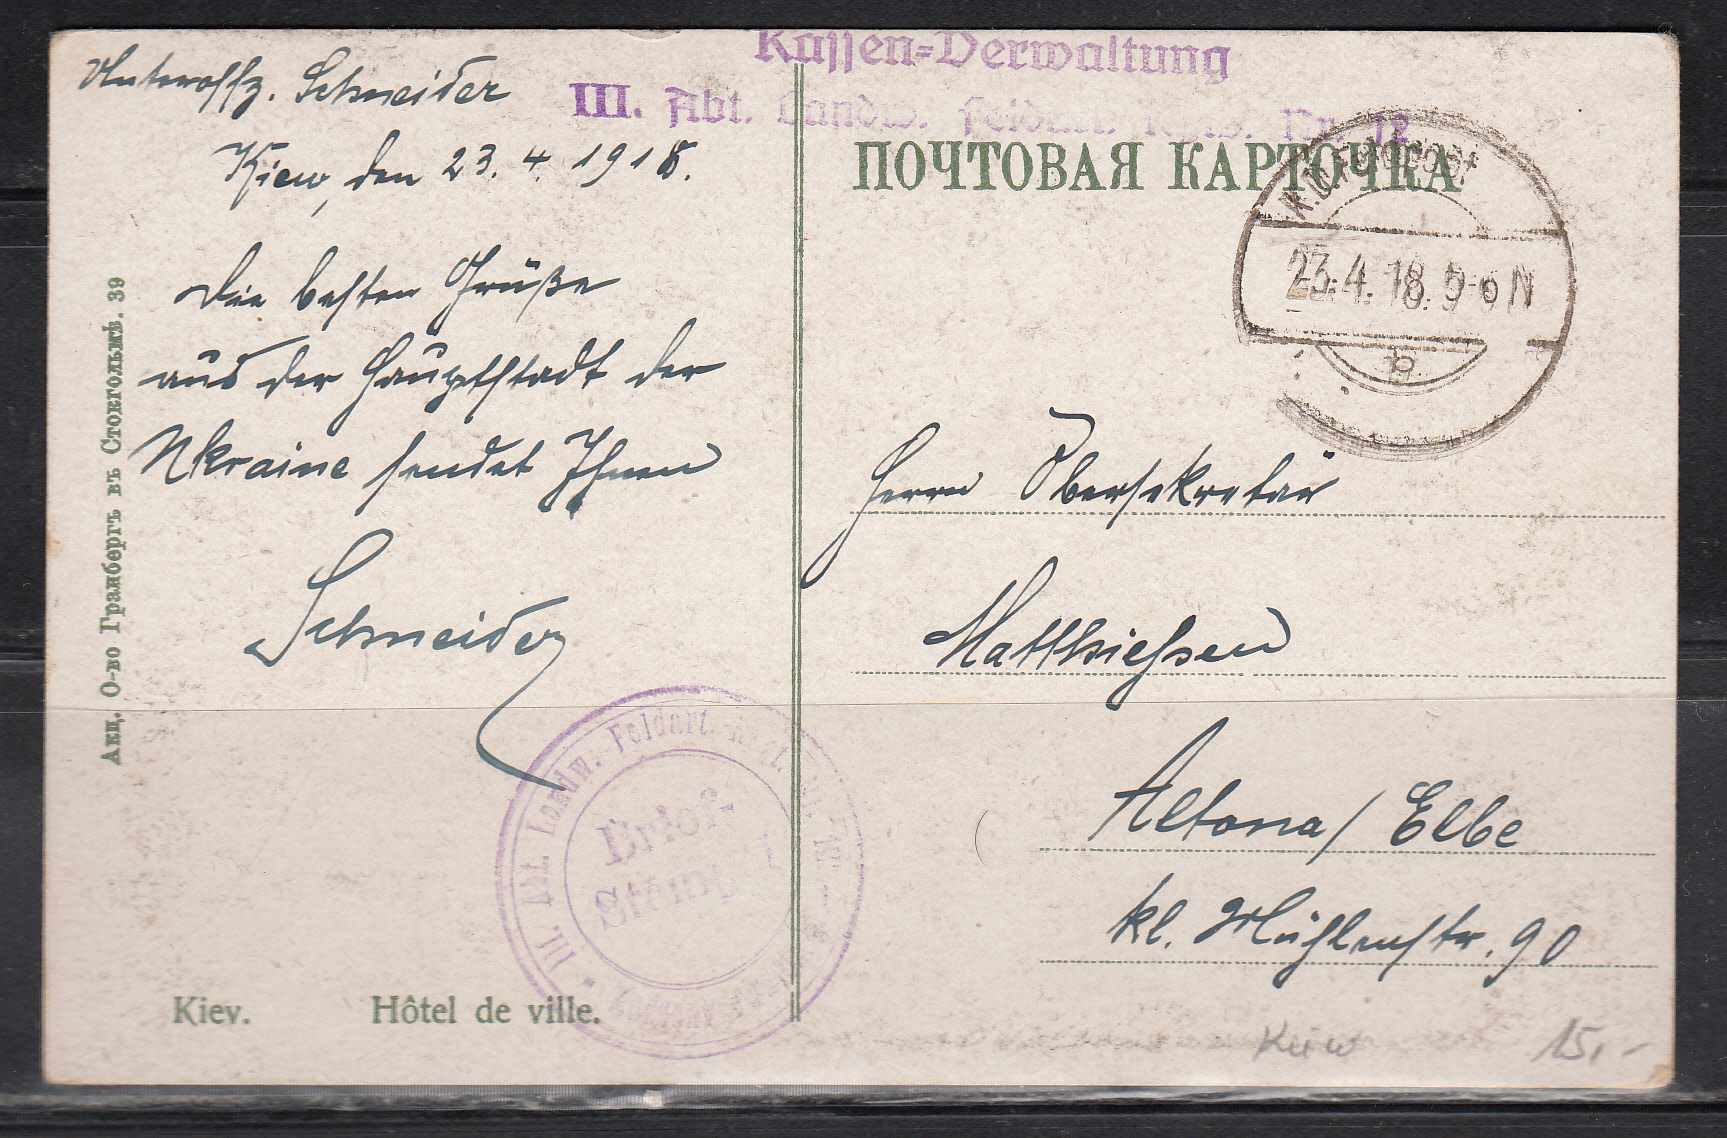 Unteroffz. Schneider
Kiew, den 23. 4. 1918.
Die besten Grüße
aus der Hauptstadt der
Ukraine sendet Ihnen
Schneider
Kassen-Verwaltung
III. Abt. Landw. Feldart. Regts. Nr. 12
ПОЧТОВАЯ КАРТОЧКА
K.D. Feldpost
23.4.18. 5-6 N
b
Herrn Obersekretär
Matthiessen
Altona / Elbe
kl. Mühlenstr. 90
III. Abt. Landw. Feldart.
Brief-
Stempel
Акц. О-во Гранбергъ въ Стокгольмѣ. 39
Kiev. Hôtel de ville.
Kiew 15,-